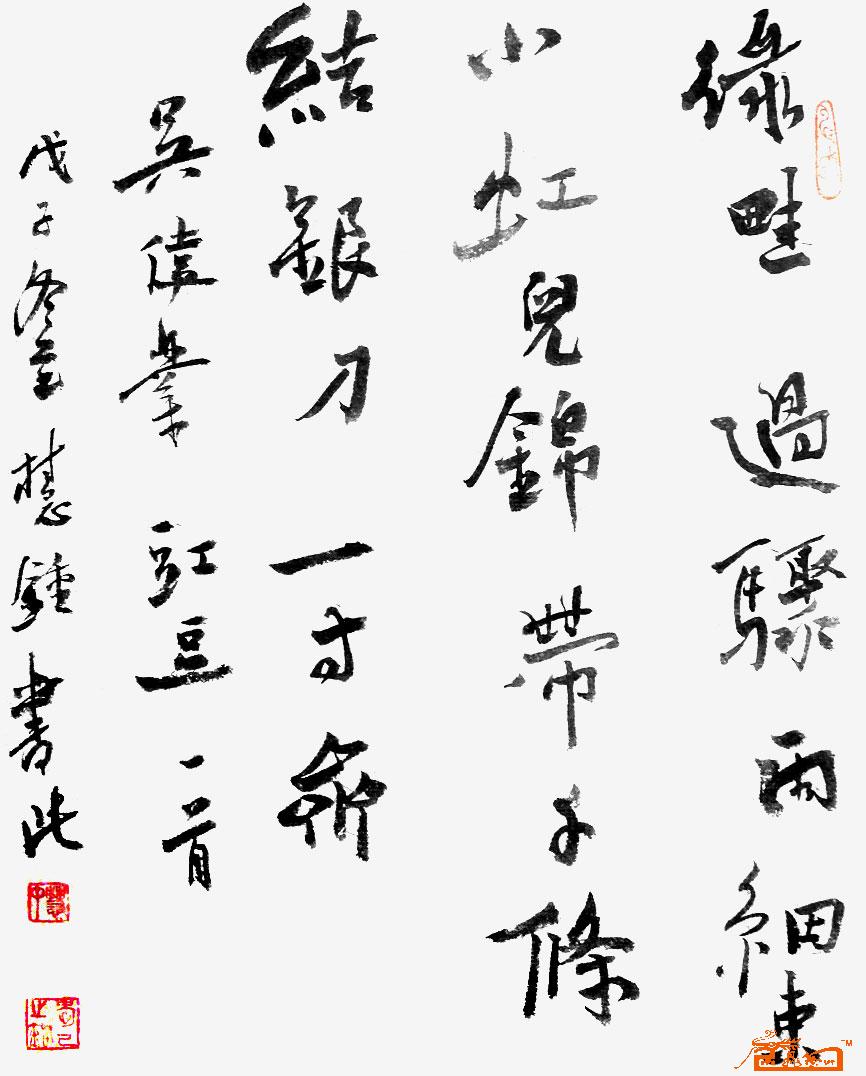 綠畦過驟雨細束
小虹兒錦帶千條
結銀刀一寸齊
吳偉業豇豆一首
戊子冬至鍾書此